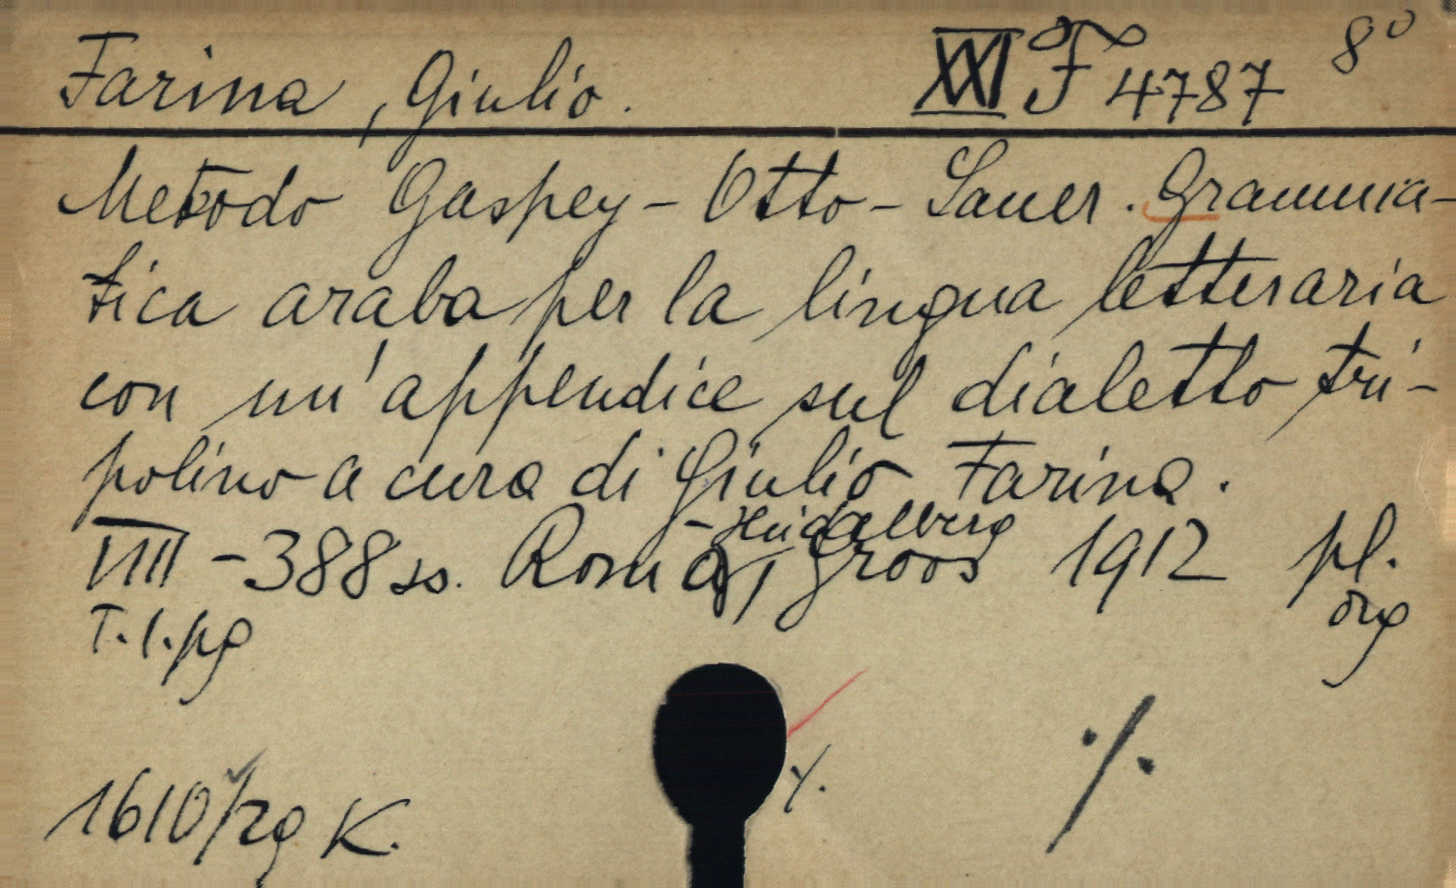 Farina, Giulio. XXI F 4787 8°
Metodo Gaspey - Otto - Sauer. Gramma-
tica araba per la lingua letteraria
con un'appendice sul dialetto tri-
polino a cura di Giulio Farina.
VIII - 388 ss. Roma - Heidelberg, Groos 1912 pl.
T. 1. pg org
1610/29 K. ·/.